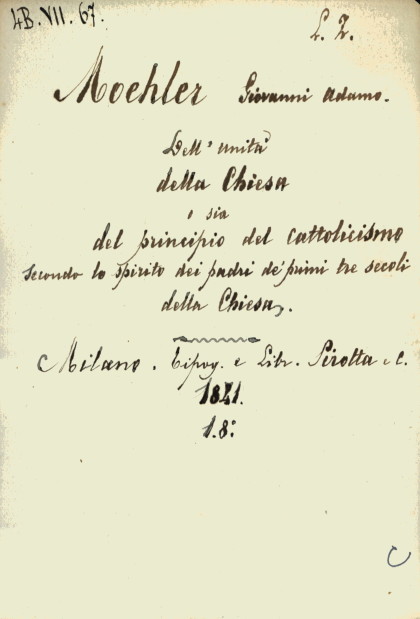 4B.VII.67.
L. 2.
Moehler Giovanni Adamo.
Dell' unità
della Chiesa
o sia
del principio del cattolicismo
secondo lo spirito dei padri de' primi tre secoli
della Chiesa.
Milano. Tipog. e Libr. Pirotta e C.
1841.
1.8°
C